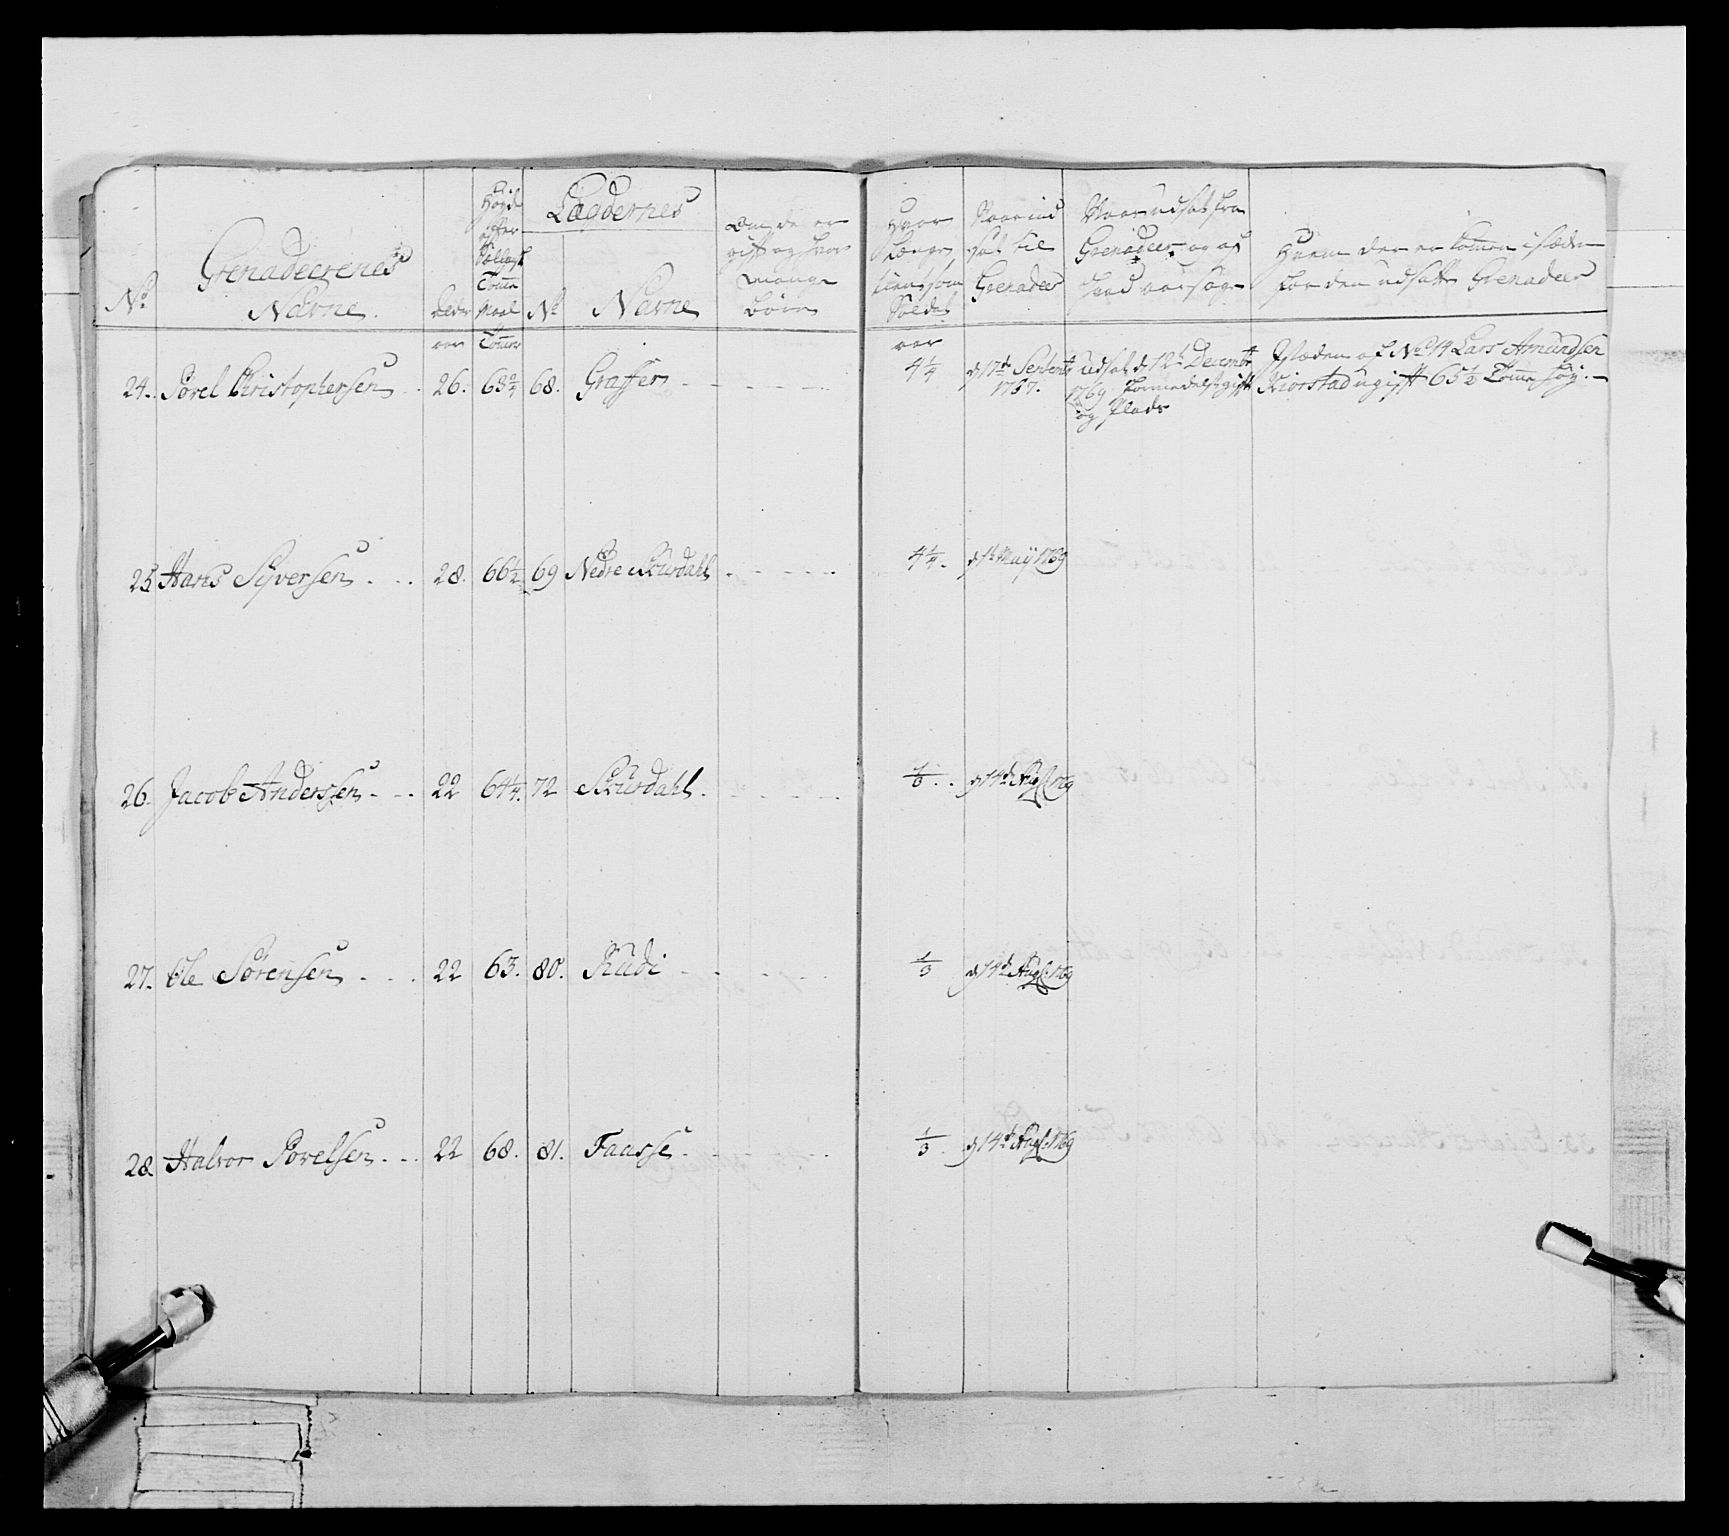 No
Grenadeerenes
Navne.
Alder
aar
Høyde
efter
Tomme
Maal
Tommer
Lægdernes
No
Navne
Om de er
gift og hvor
mange
Børn
Hvor
længe
tient som
Soldat
aar
Naar ind
sat til
Grenadeer
Naar udsat fra
Grenadeer og af
hvad aarsage
Hvem der er kommen i stæden
for den udsatte Grenadeer
24. Povel Christophersen 26. 68 2/4 68. Graffer - - - - 4 1/4 d 17de Septembr 1767. udsat d 12te Decembr
1769 formedelst gift
og Plads
I stæden af No 14 Lars Amundsen
Kiorstad ugift 65 1/2 Tomme høy. -
25 Hans Syversen . . . 28. 66 1/2 69 Nedre Skurdahl . - - - - 4 1/4. d 1te May 1769
26. Jacob Anderssen - - . 22 64 1/4. 72 Skurdahl . - - - 1/3 . . d 14de Aug: 1769
27. Ole Sørensen . . . 22 63. 80. Rudi - - - - 1/3 d 14de Aug: 1769
28. Halvor Povelsen . . . 22 68. 81. Faasse . - - - 1/3 . d 14de Aug: 1769